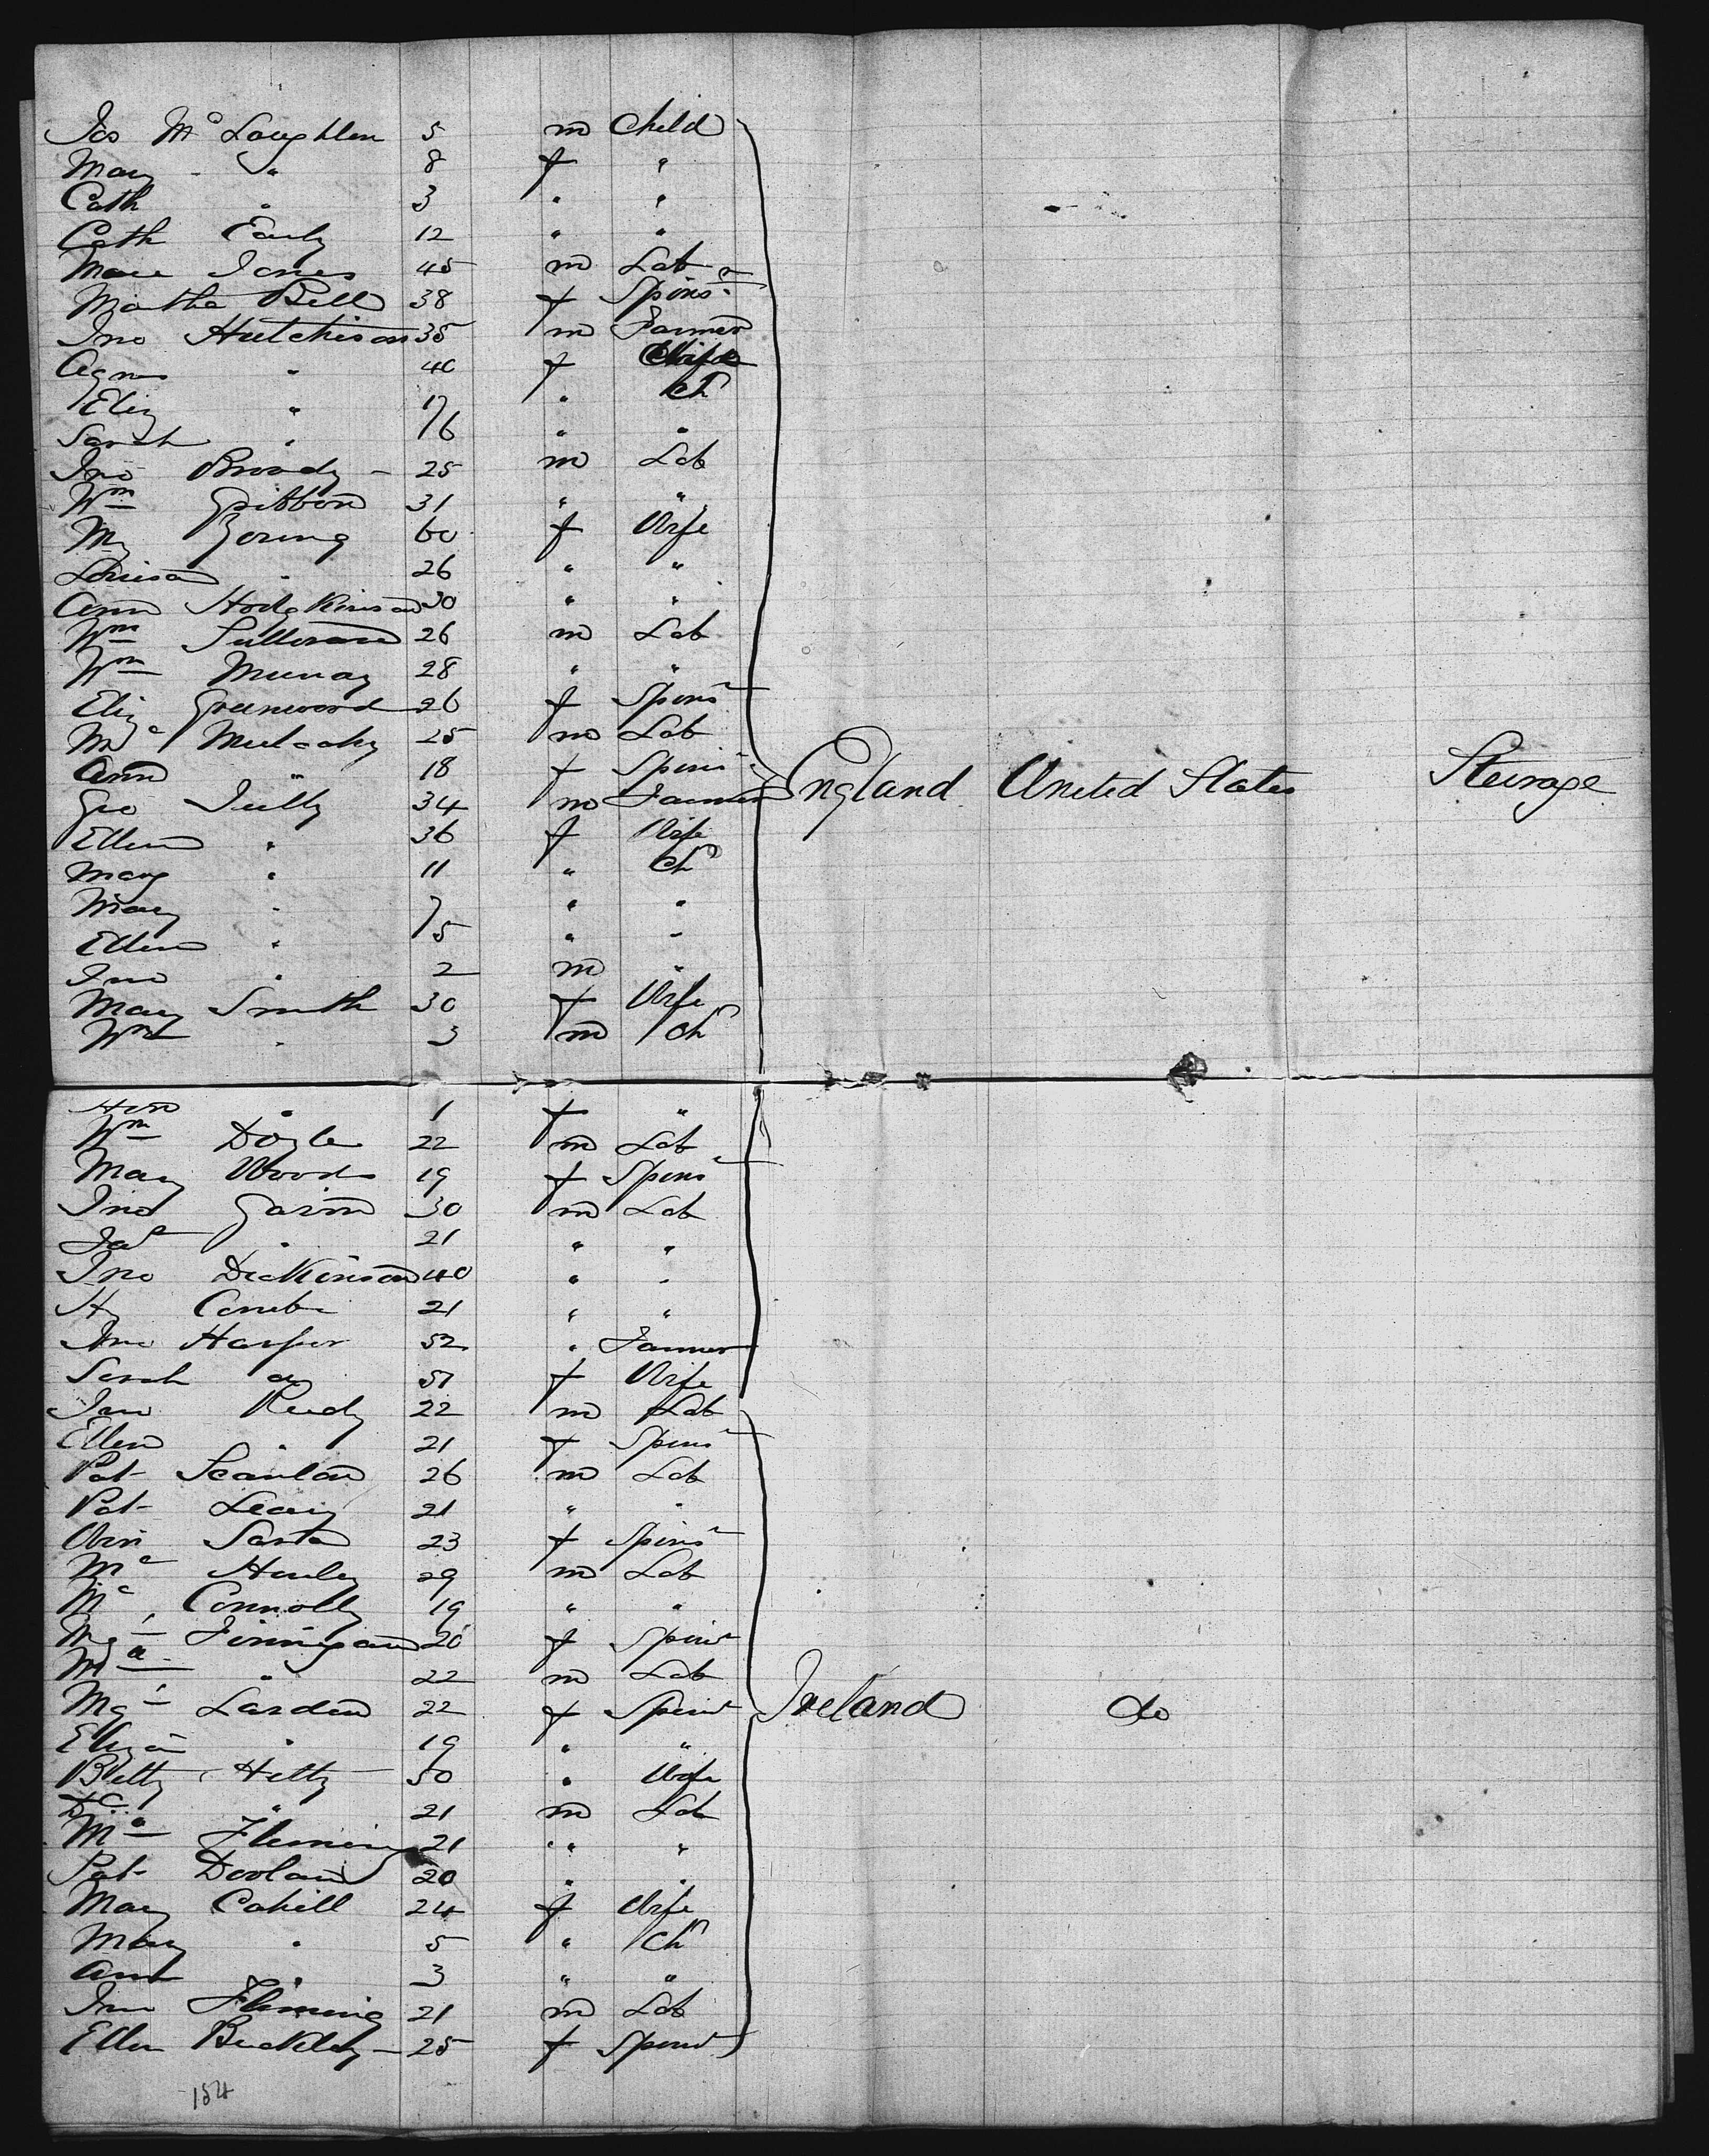 Jas Mc Loughlen 5 m Child
Mary " 8 f "
Cath " 3 " "
Cath Early 12 " "
Jones 45 m Lab
Martha Bell 38 f Spinsr
Jno Hutchison 35 m Farmer
Agnes " 40 f Wife
Eliz " 17 " Ch
Sarah " 16 " "
Jno Brody - 25 m Lab
Wm Gibbon 31 " "
My Young 60 f Wife
Louisa " 26 " "
Ann Hodgkinson 30 " "
Wm Sullivan 26 m Lab
Wm Murray 28 " "
Eliz Greenwood 26 f Spinsr
Ml Mulcahy 25 m Lab
Ann " 18 f Spinsr
Geo Tully 34 m Farmer England United States Steerage
Ellen " 36 f Wife
Marg " 11 " Ch
Mary " 7 " "
Ellen " 5 " "
Jno " 2 m "
Mary Smith 30 f Wife
Wm " 3 m Ch
" 1 f "
Wm Doyle 22 m Lab
Mary Woods 19 f Spinsr
Jno Gavin 30 m Lab
Jas " 21 " "
Jno Dickinson 40 " "
Hy 21 " "
Jno Harper 52 " Farmer
Sarah " 57 f Wife
Jno Reedy 22 m Lab
Ellen " 21 f Spinsr
Pat Scanlan 26 m Lab
Pat Leary 21 " "
23 f Spinsr
Ml Henley 29 m Lab
Ml Connolly 19 " "
Mgt Finnigan 20 f Spinsr
Ml " 22 m Lab
Mgt Larden 22 f Spinsr Ireland do
Eliza " 19 " "
Betty 50 " Wife
" 21 m Lab
Ml Fleming 21 " "
Pat Doolan 20 " "
Mary Cahill 24 f Wife
Mary " 5 " Ch
Ann " 3 " "
Jno Fleming 21 m Lab
Ellen Buckley - 25 f Spinsr
154